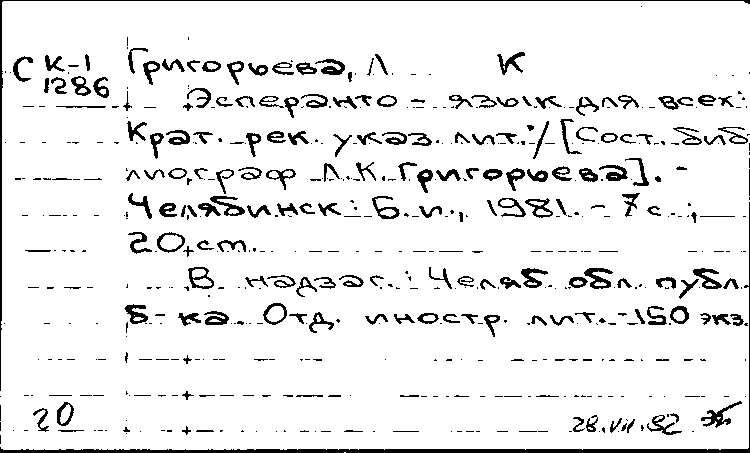 С К-1 Григорьева, Л К
1286
Эсперанто - язык для всех:
Крат. рек. указ. лит. / [Сост. биб
лиограф Л.К. Григорьева]. -
Челябинск: Б.и., 1981. - 7с.;
20 cm.
В надзаг.: Челяб. обл. публ.
б-ка. Отд. иностр. лит. - 150 экз.
20 28.VII.82